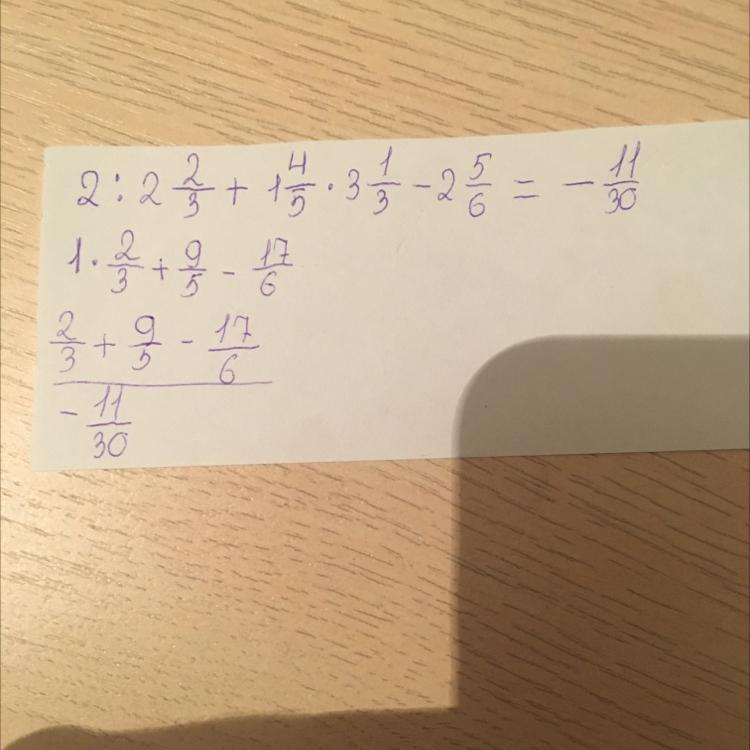 2 : 2 2/3 + 1 4/5 · 3 1/3 - 2 5/6 = - 11/30
1 · 2/3 + 9/5 - 17/6
2/3 + 9/5 - 17/6
- 11/30